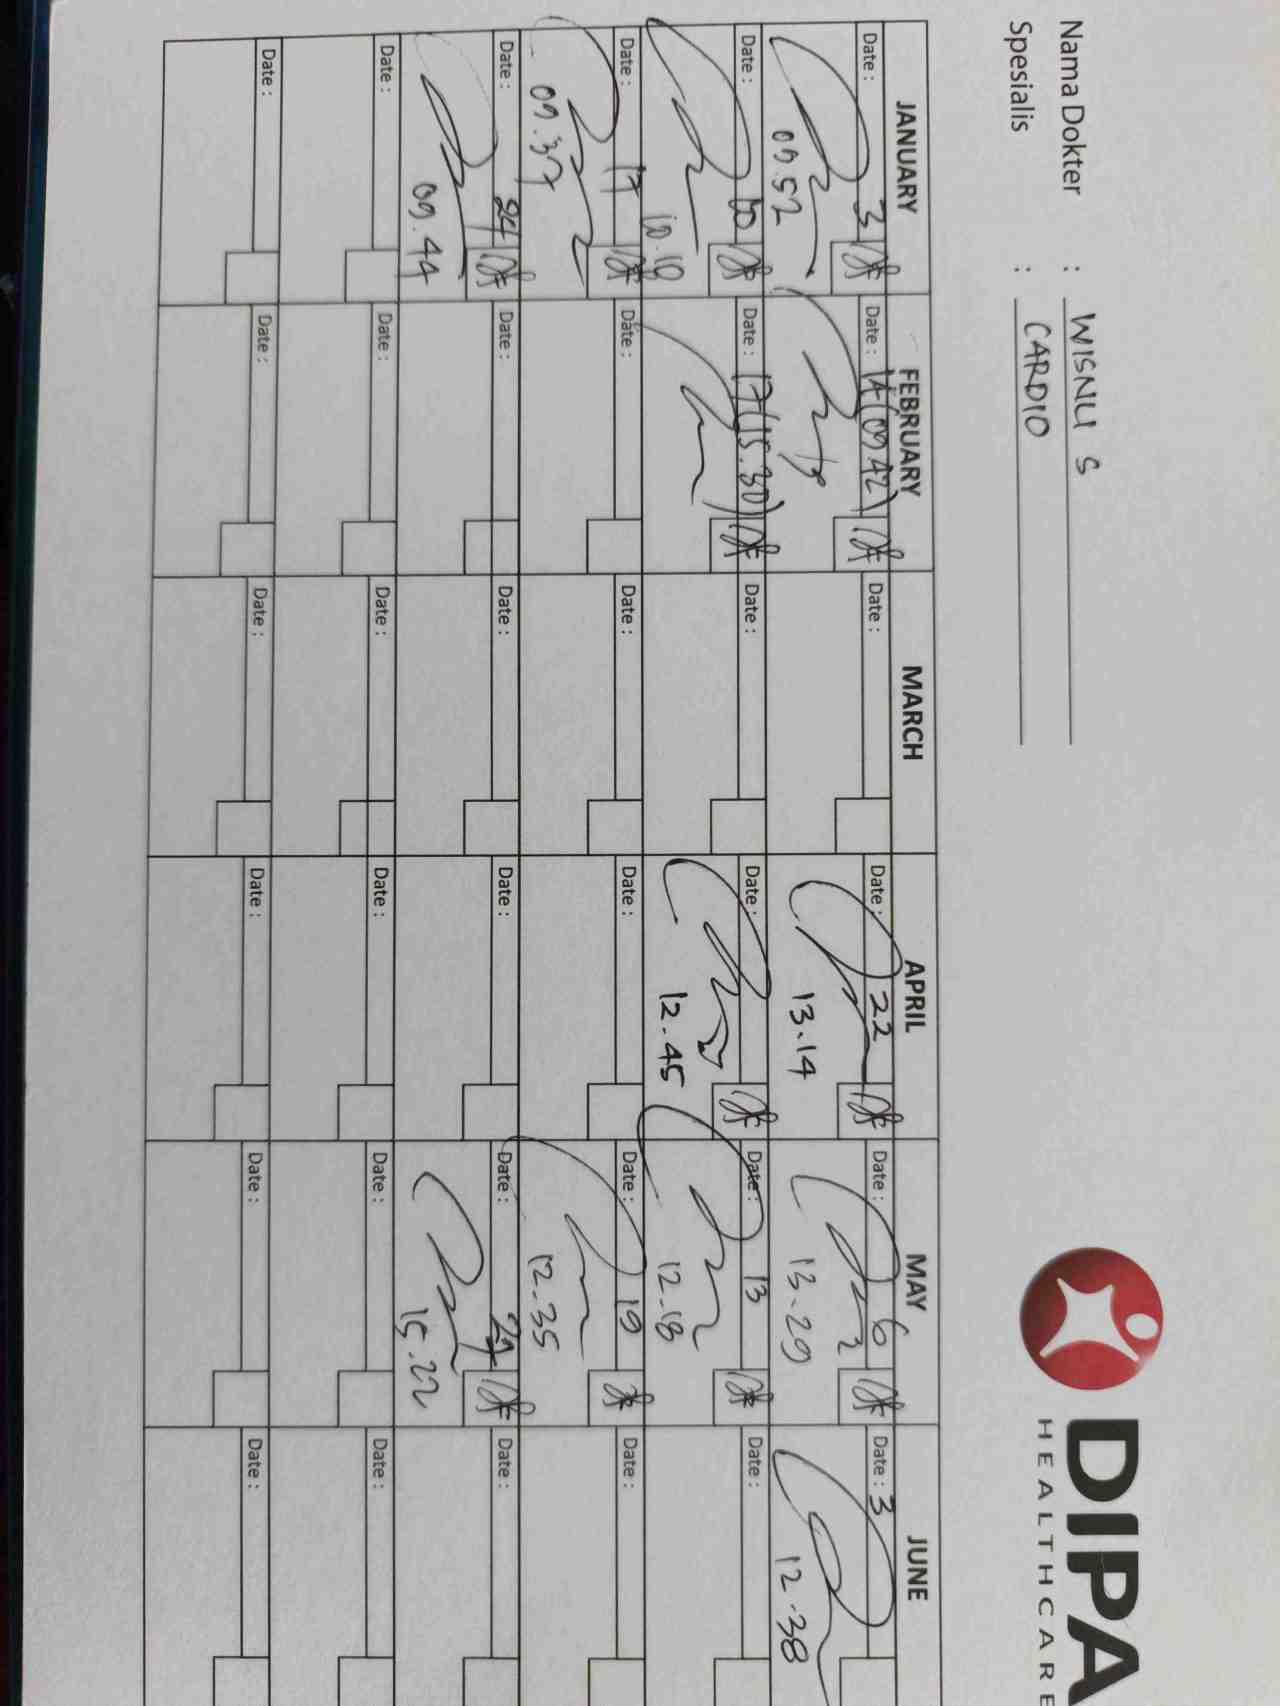 Nama Dokter : WISNU S
Spesialis : CARDIO
DIPA
HEALTHCARE
JANUARY FEBRUARY MARCH APRIL MAY JUNE
Date : 3 Date : 14 (09.42) Date : Date : 22 Date : 6 Date : 3
09.52 13.14 13.29 12.38
Date : 10 Date : 17 (15.30) Date : Date : Date : 13 Date :
10.10 12.45 12.18
Date : 17 Date : Date : Date : Date : 19 Date :
09.37 12.35
Date : 24 Date : Date : Date : Date : Date :
09.44 15.22
Date : Date : Date : Date : Date : Date :
Date : Date : Date : Date : Date : Date :